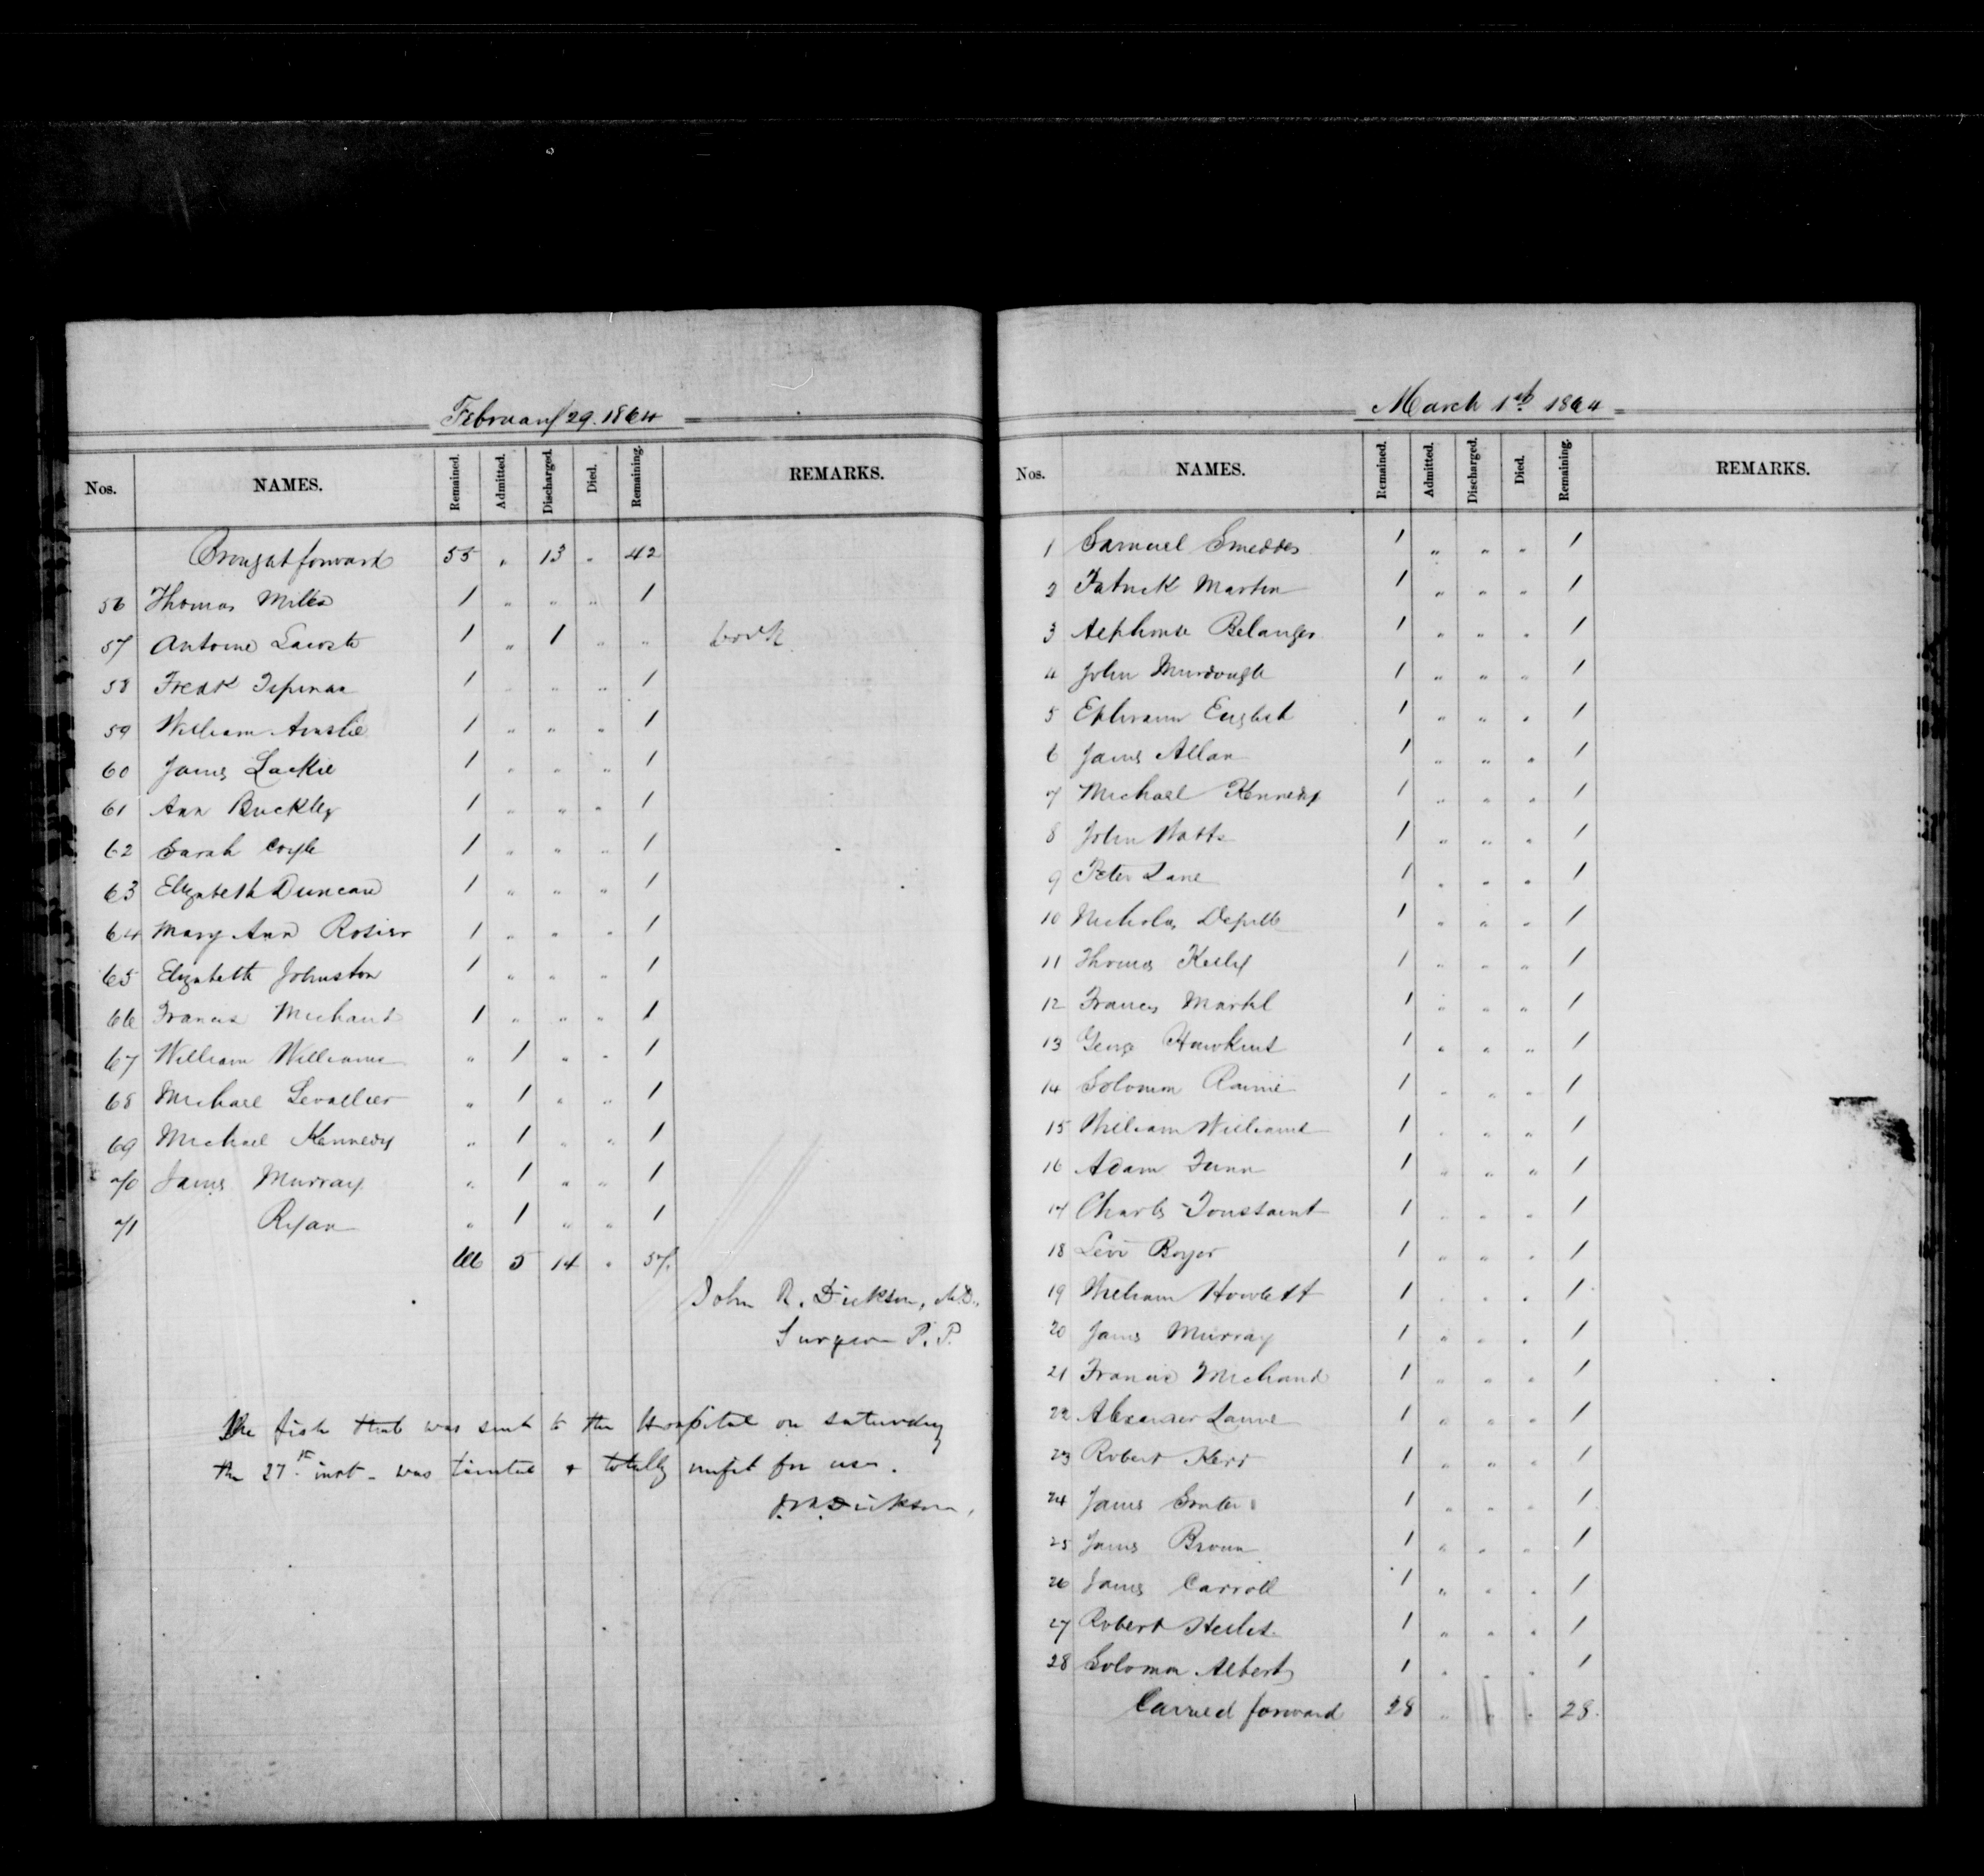 February 29. 1864
Nos. NAMES. Remained. Admitted. Discharged. Died. Remaining. REMARKS.
Brought forward 55 " 13 " 42
56 Thomas Mills 1 " " " 1
57 Antoine Lacoste 1 " 1 " " work
58 Fredk 1 " " " 1
59 William Ainslie 1 " " " 1
60 James Lackie 1 " " " 1
61 Ann Buckley 1 " " " 1
62 Sarah Coyle 1 " " " 1
63 Elizabeth Duncan 1 " " " 1
64 Mary Ann Rosier 1 " " " 1
65 Elizabeth Johnston 1 " " " 1
66 Francis Michaud 1 " " " 1
67 William Williams " 1 " " 1
68 Michael Levallier " 1 " " 1
69 Michael Kennedy " 1 " " 1
70 James Murray " 1 " " 1
71 Ryan " 1 " " 1
66 5 14 " 57.
John R. Dickson, M.D.,
Surgeon P. P.
The fish that was sent to the Hospital on saturday
the 27th inst - was tainted & totally unfit for use.
J.R. Dickson,
March 1st 1864
Nos. NAMES. Remained. Admitted. Discharged. Died. Remaining. REMARKS.
1 Samuel Smeddes 1 " " " 1
2 Patrick Martin 1 " " " 1
3 Alphonse Belanger 1 " " " 1
4 John Murdough 1 " " " 1
5 Ephraim English 1 " " " 1
6 James Allan 1 " " " 1
7 Michael Kennedy 1 " " " 1
8 John Watts 1 " " " 1
9 Peter Lane 1 " " " 1
10 Nicholas 1 " " " 1
11 Thomas Kelly 1 " " " 1
12 Francis Martel 1 " " " 1
13 George Hawkins 1 " " " 1
14 Solomon 1 " " " 1
15 William Williams 1 " " " 1
16 Adam 1 " " " 1
17 Charles Toussaint 1 " " " 1
18 Levi Boyer 1 " " " 1
19 William Howlett 1 " " " 1
20 James Murray 1 " " " 1
21 Francis Michaud 1 " " " 1
22 Alexander 1 " " " 1
23 Robert Kerr 1 " " " 1
24 James 1 " " " 1
25 James Brown 1 " " " 1
26 James Carroll 1 " " " 1
27 Robert 1 " " " 1
28 Solomon Alberts 1 " " " 1
Carried forward 28 " " 28.